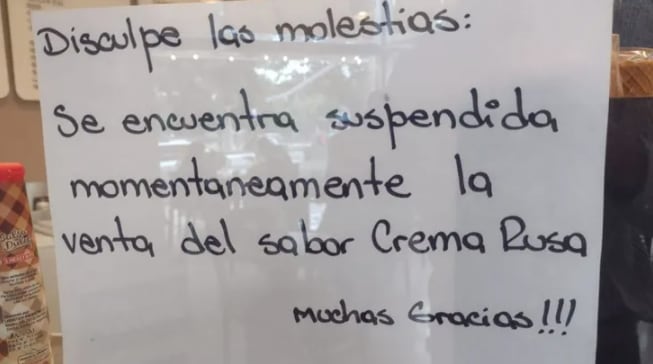 Disculpe las molestias:
Se encuentra suspendida
momentaneamente la
venta del sabor Crema Rusa
Muchas Gracias!!!